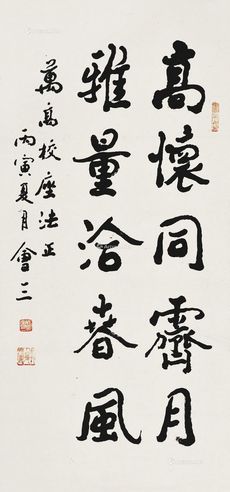 高懷同霽月
雅量洽春風
萬高校座法正
丙寅夏月會三